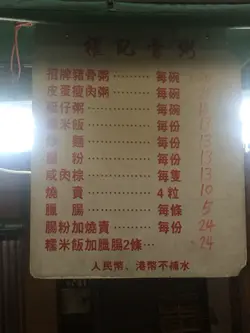 記 粥
招牌豬骨粥 ········· 每碗
皮蛋瘦肉粥 ········· 每碗
艇仔粥 ············ 每碗
糯米飯 ············ 每份
炒麵 ············ 每份 13
腸粉 ············ 每份 13
咸肉粽 ············ 每隻 13
燒賣 ············ 4粒 10
臘腸 ············ 每條 5
腸粉加燒賣 ········· 每份 24
糯米飯加臘腸2條··· 24
人民幣、港幣不補水